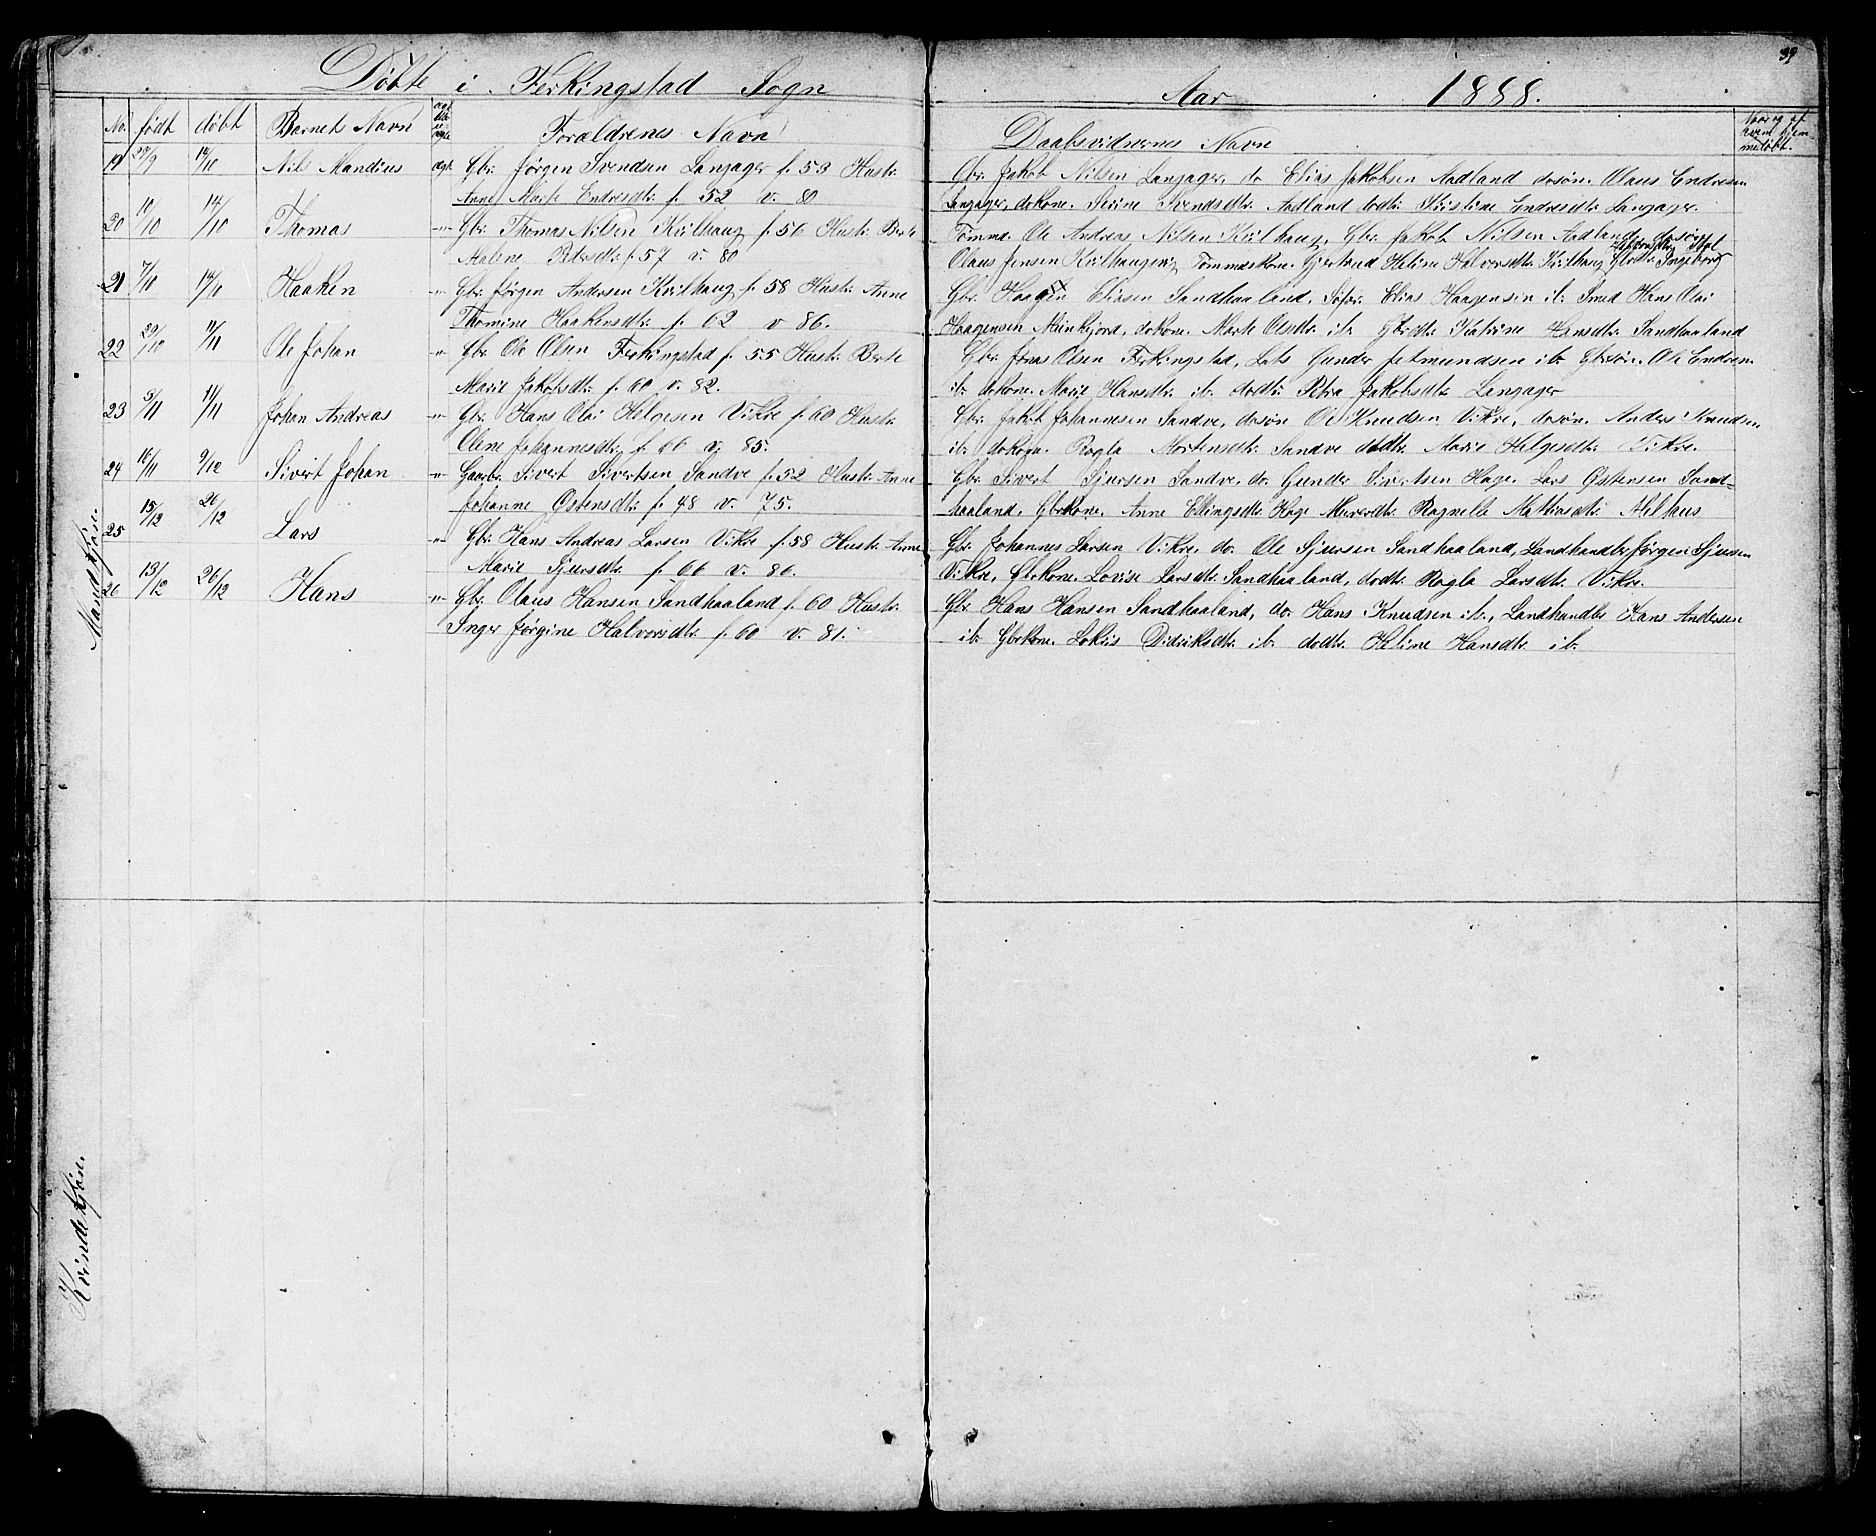 39
Döbte i Ferkingstad Sogn
Aar 1888.
No. født døbt Barnets Navn ægte Forældrenes Navn
Daabsvidnernes Navn
Naar og af hvem hjemmedöbt.
Mandkjön.
19 27/9 14/10 Nils Mandius ægt. Gbr. Jørgen Svendsen Langager f. 53 Hustr.
Anne Marte Endresdtr. f. 52 v. 80
Gbr. Jakob Nilsen Langager, do Elias Jakobsen Aadland dosøn. Olaus Endresen
Langager, dokone. Serine Svendsdtr. Aadland dodtr. Kristine Endresdtr. Langager.
20 10/10 14/10 Thomas -"- Gbr. Thomas Nilsen Kvilhaug f. 56 Hustr. Berte
Malene Pedersdtr. f. 57 v. 80
Tømmd. Ole Andreas Nilsen Kvilhaug, Gbr. Jakob Nilsen Aadland, dosøn
Olaus Jensen Kvilhaugvig Tømmdskone. Gjertrud Heline Halvorsdtr. Kvilhaug Gbrdtr. Ingeborg
21 7/10 14/10 Haaken -"- Gbr. Jørgen Andersen Kvilhaug f. 58 Hustr. Anne
Thomine Haakensdtr. f. 62 v 86.
Gbr. Haagen Eliasen Sandhaaland, Søfar. Elias Haagensen ib. Smed Hans Olai
Haagensen Munkejord, dokone. Marte Olsdtr. ib Gbrdtr. Katrine Hansdtr. Sandhaaland
22 29/10 11/11 Ole Johan -"- Gbr. Ole Olsen Ferkingstad f. 55 Hustr. Berte
Marie Jakobsdtr. f. 60 v. 82.
Gbr. Jonas Olsen Ferkingstad, Lods Gunder Jetmundsen ib. Gbrsøn. Ole Endresen
ib. dokone. Marie Hansdtr. ib. dodtr. Petra Jakobsdtr. Langager
23 5/11 11/11 Johan Andreas -"- Gbr. Hans Olai Helgesen Vikre f. 60 Hustr.
Oline Johannesdtr. f. 66 v. 85.
Gbr. Jakob Johannesen Sandve, dosøn Ole Knudsen Vikre, dosøn. Anders Knudsen
ib. dokone. Ragla Mortensdtr. Sandve dodtr. Marie Helgesdtr. Vikre.
24 16/11 9/12 Sivert Johan -"- Gaarbr. Sivert Sivertsen Sandve f. 52 Hustr. Anne
Johanne Østensdtr. f. 48 v. 75.
Gbr. Sivert Sjursen Sandve, do. Gunder Sivertsen Hage. Lars Østensen Sand-
haaland. Gbrkone. Anne Ellingsdtr. Hage Murerdtr. Ragnele Mathiasdtr. Melhus
25 15/12 26/12 Lars -"- Gbr. Hans Andreas Larsen Vikre f. 58 Hustr. Anne
Marie Sjursdtr. f. 66 v. 86.
Gbr. Johannes Larsen Vikre, do. Ole Sjursen Sandhaaland, Landhandler Jørgen Sjursen
Vikre, Gbrkone. Lovise Larsdtr. Sandhaaland, dodtr. Ragla Larsdtr. Vikre.
26 13/12 26/12 Hans -"- Gbr. Olaus Hansen Sandhaaland f. 60 Hustr.
Inger Jørgine Halvorsdtr. f. 60 v. 81.
Gbr. Hans Hansen Sandhaaland, do. Hans Knudsen ib., Landhandler Hans Andersen
ib. Gbrkone. Lokvis Didriksdtr. ib. dodtr. Heline Hansdtr. ib.
Kvindekjön.